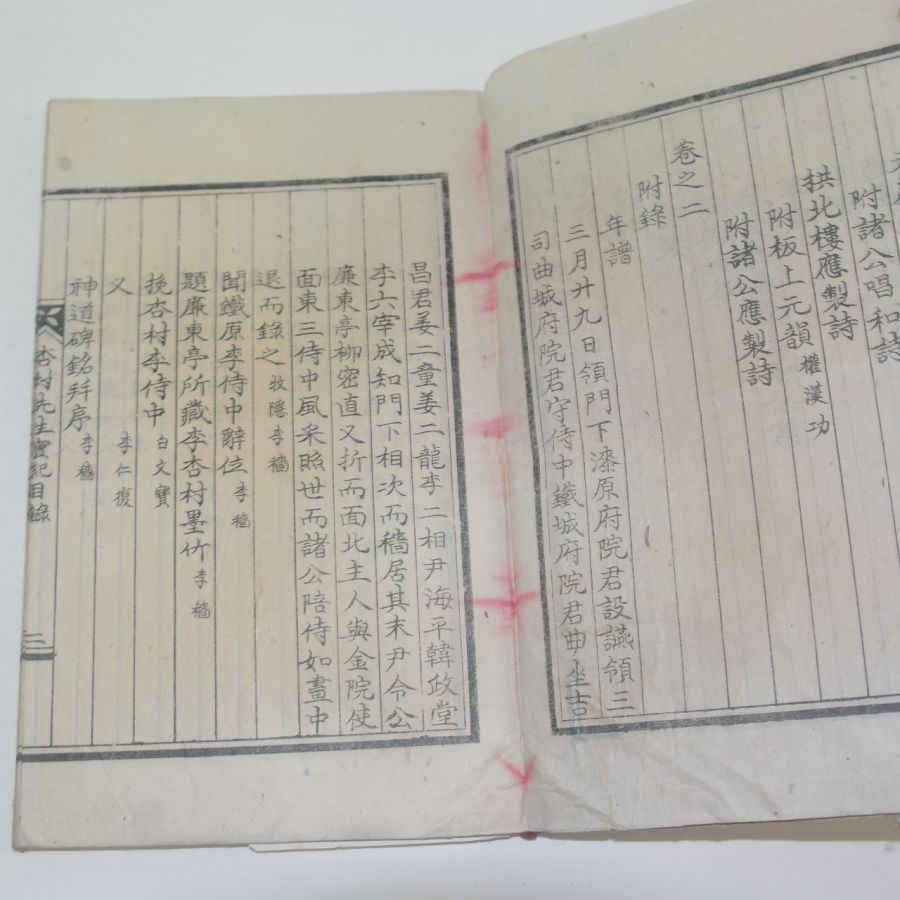 附諸公唱和詩
拱北樓應製詩
附板上元韻 權漢功
附諸公應製詩
卷之二
附錄
年譜
三月廾九日領門下漆原府院君設讌領三
司曲城府院君守侍中鐵城府院君曲坐吉
昌君姜二童姜二龍李二相尹海平韓政堂
李六宰成知門下相次而穡居其末尹令公
廉東亭柳密直又折而面北主人與金院使
面東三侍中風采照世而諸公陪侍如畫中
退而錄之 牧隱李穡
聞鐵原李侍中辭位 李穡
題廉東亭所藏李杏村墨竹 李穡
挽杏村李侍中 白文寶
又 李仁復
神道碑銘幷序 李穡
杏村先生實紀目錄
三